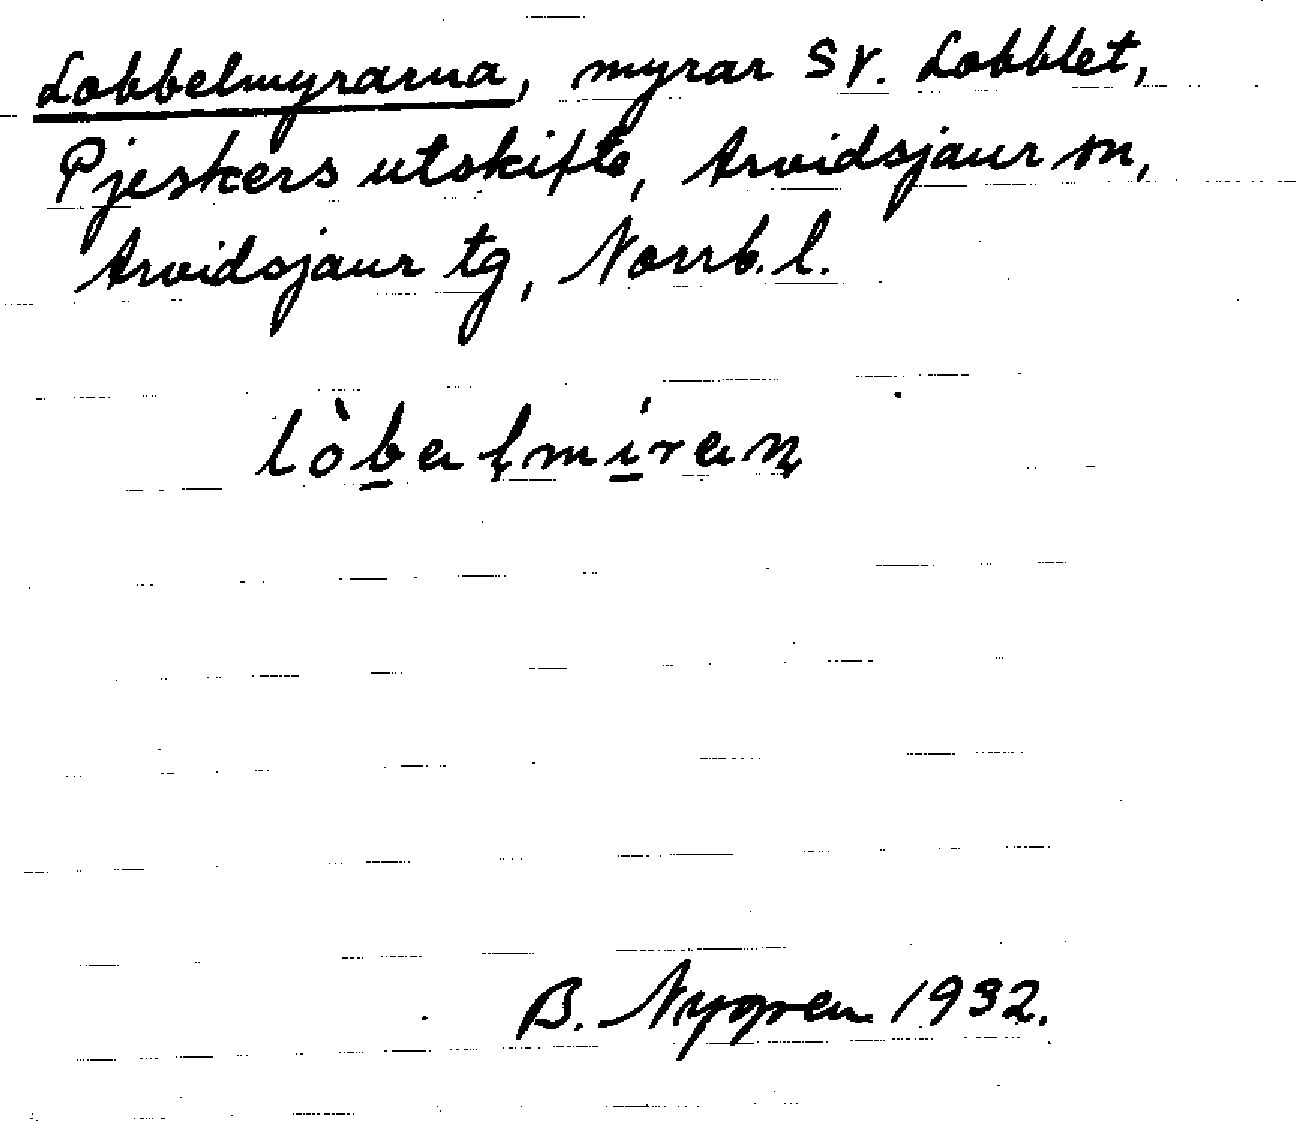 Lobbelmyrarna, myrar SV. Lobblet,
Pjeskers utskifte, Arvidsjaur sn,
Arvidsjaur tg, Norrb. l.
B. Nygren 1932.